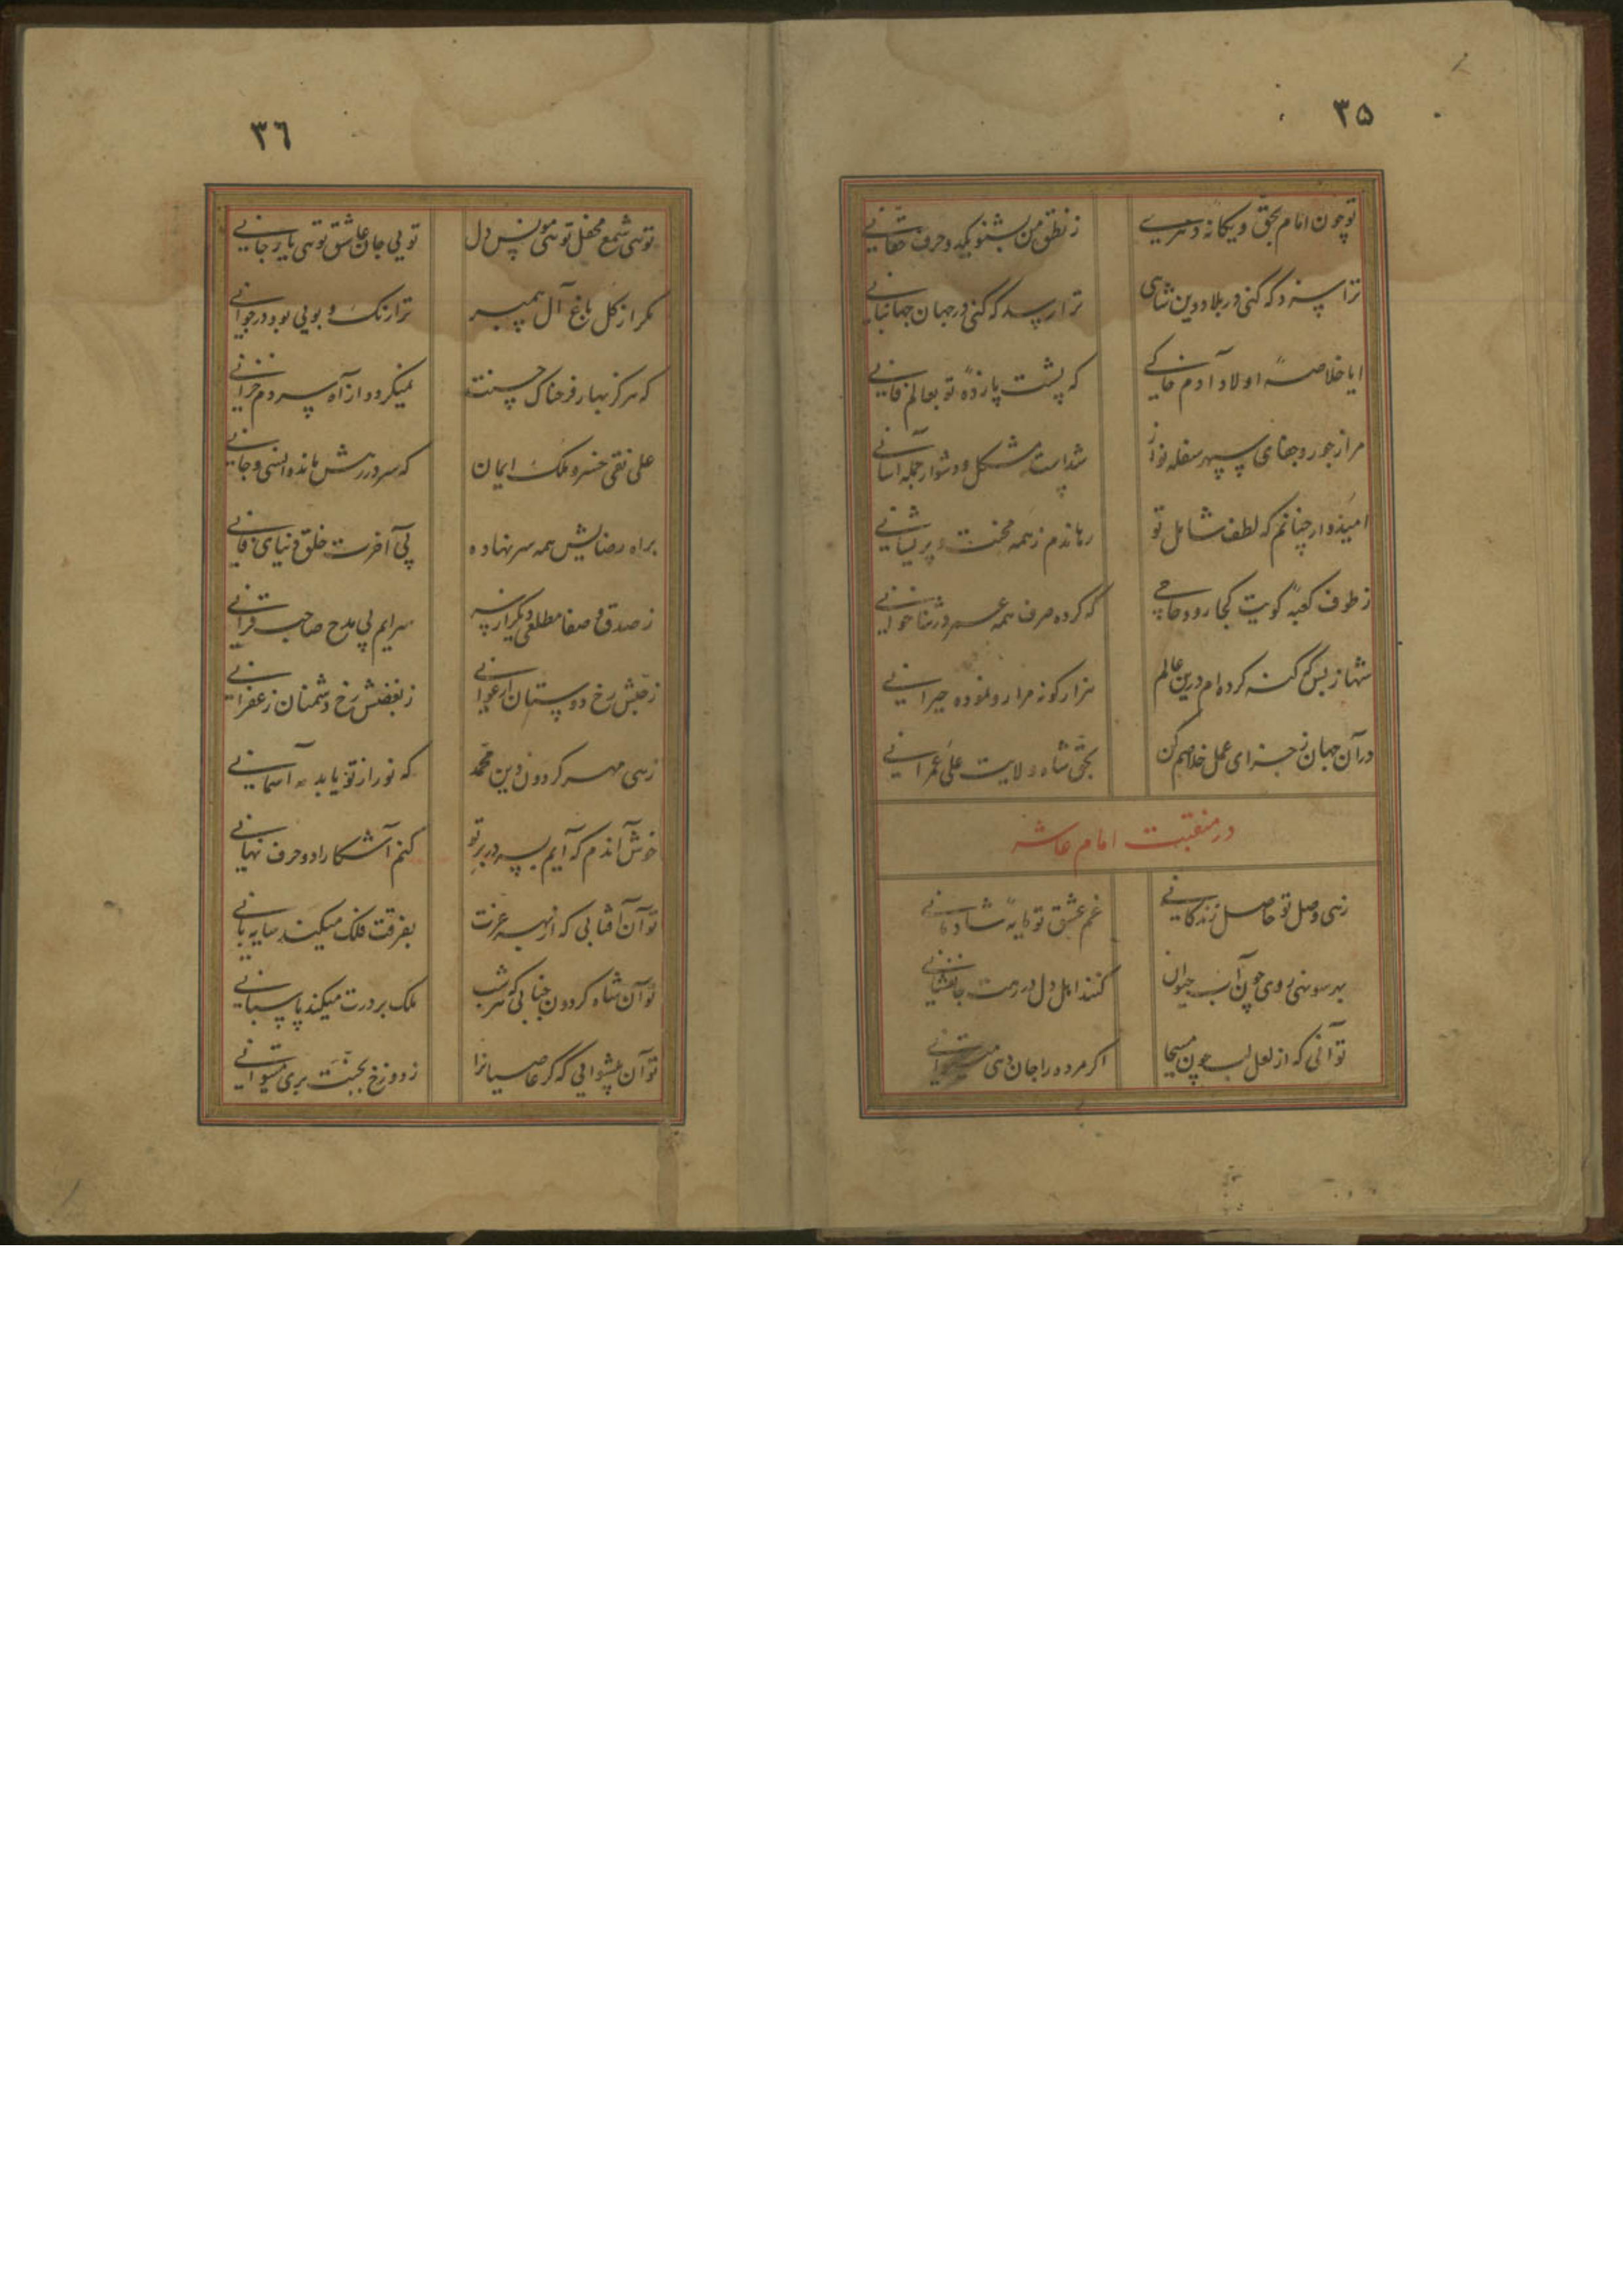 ۳۵
تو چون امام بحق و یکانه دهری
ز نطق من بشنو یکدو حرف حقانی
ترا سزد که کنی در بلاد دین شاهی
ترا رسد که کنی در جهان جهانبانی
ایا خلاصهٔ اولاد آدم خاکی
که پشت پا زدهٔ تو بعالم فانی
مرا ز جور و جفای سپهر سفله نواز
شداست مشکل و دشوار جمله آسانی
امیدوار چنانم که لطف شامل تو
رهاندم ز همه محنت و پریشانی
ز طوف کعبهٔ کویت کجا رود حاجی
که کرده صرف همه عمر در ثناخوانی
شها ز بس که کنه کرده‌ام درین عالم
هزار کونه مرا رو نموده حیرانی
در آن جهان ز جزای عمل خلاصم کن
بحق شاه ولایت علی عمرانی
در منقبت امام عاشر
زهی وصل تو حاصل زندکانی
غم عشق تو مایهٔ شادمانی
بهر سو نهی روی چون آب حیوان
کنند اهل دل در رهت جانفشانی
تو آنی که از لعل لب چون مسیحا
اکر مرده را جان دهی میتوانی
۳٦
توئی شمع محفل توئی مونس دل
تویی جان عاشق توئی یار جانی
مکر از کل باغ آل پیمبر
ترا رنک و بویی بود در جوانی
که هرکز بهار فرحناک حسنت
نمیکردد از آه سردم خزانی
علی نقی خسرو ملک ایمان
که سر در رهش مانده انسی و جانی
براه رضایش همه سر نهاده
پی آخرت خلق دنیای فانی
ز صدق و صفا مطلعی دیکر از نو
سرایم پی مدح صاحب قرانی
ز حبش رخ دوستان ارغوانی
ز بغضش رخ دشمنان زعفرانی
زهی مهر کردون دین محمد
که نور از تو یابد مه آسمانی
خوش آندم که آیم بسر در بر تو
کنم آشکارا دو حرف نهانی
تو آن آفتابی که از بهر عزت
بفرقت فلک میکند سایه بانی
تو آن شاه کردون جنابی که هر شب
ملک بر درت میکند پاسبانی
تو آن پیشوایی که کر عاصیانرا
ز دوزخ بجنت بری میتوانی